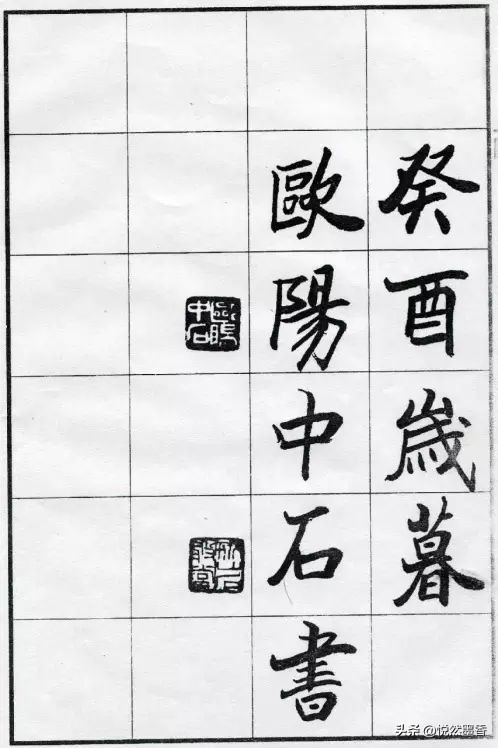 癸酉歲暮
歐陽中石書
歐陽中石
头条 @悦然墨香